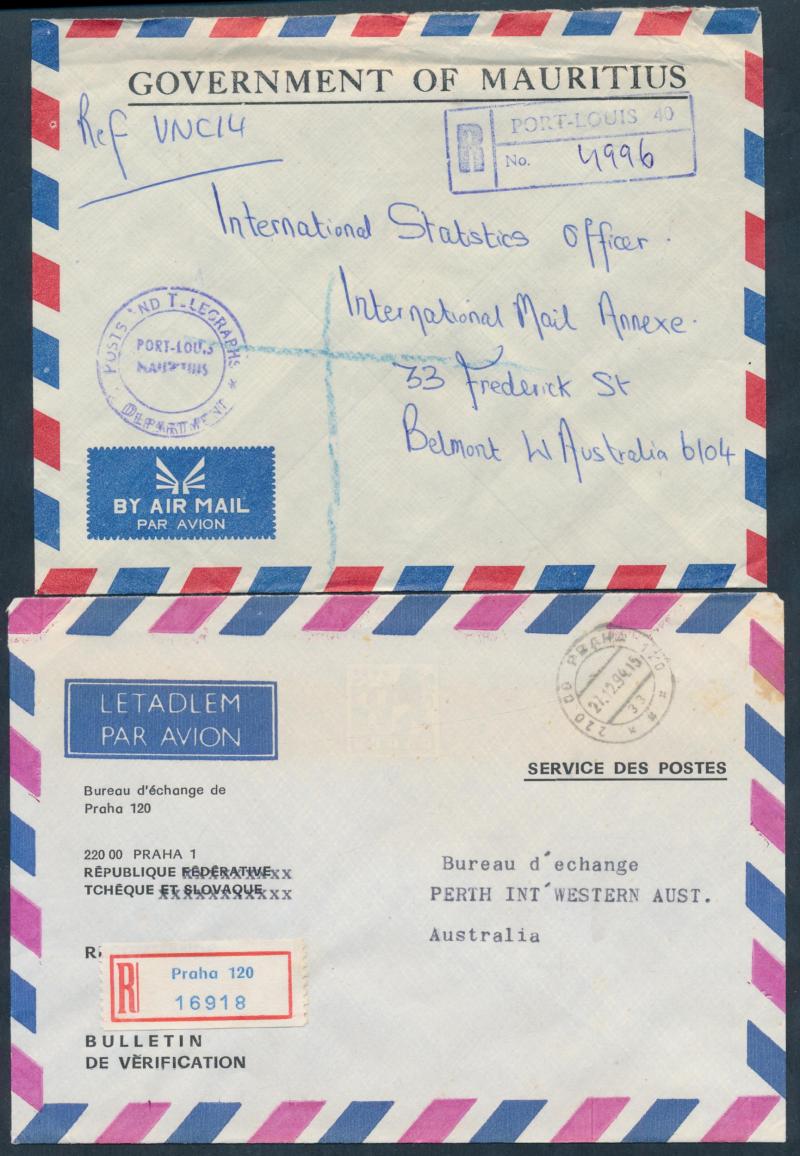 GOVERNMENT OF MAURITIUS
Ref VNC14
R PORT-LOUIS 40
No. 4996
International Statstics Officer.
International Mail Annexe.
33 Frederick St
Belmont W Australia 6104
POSTS AND TELEGRAPHS
PORT-LOUIS
MAURITIUS
DEPARTMENT
BY AIR MAIL
PAR AVION
LETADLEM
PAR AVION
220 00 PRAHA 120
27.12.94.15
33
SERVICE DES POSTES
Bureau d'échange de
Praha 120
220 00 PRAHA 1
RÉPUBLIQUE FÉDÉRATIVE
TCHÈQUE ET SLOVAQUE
Bureau d´echange
PERTH INT´WESTERN AUST.
Australia
R Praha 120
16918
BULLETIN
DE VÉRIFICATION